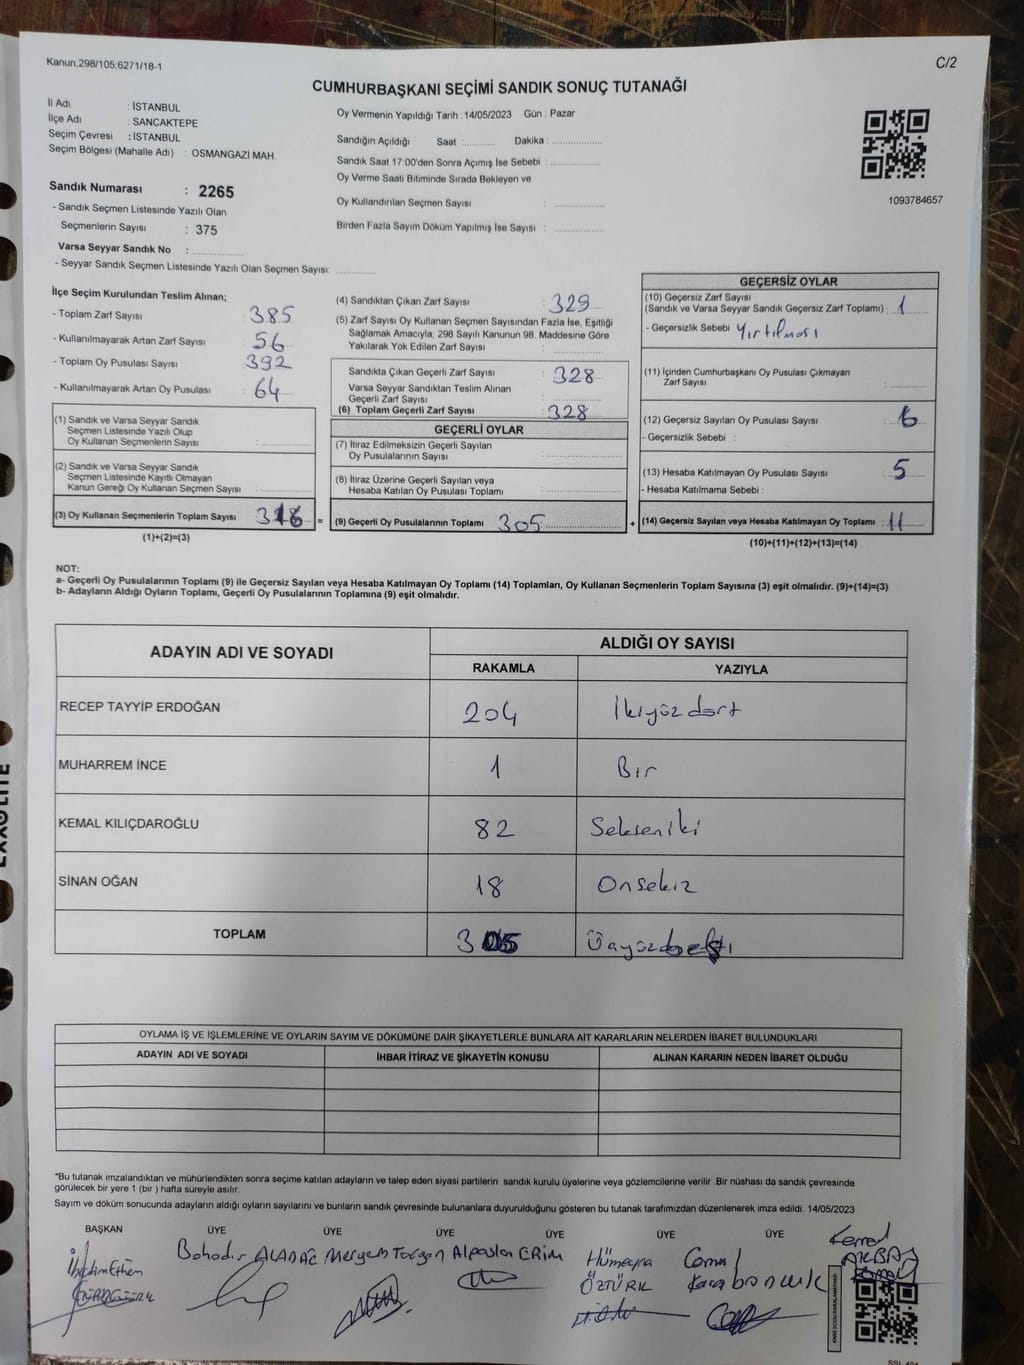 Kanun,298/105,6271/18-1
C/2
CUMHURBAŞKANI SEÇİMİ SANDIK SONUÇ TUTANAĞI
İl Adı : İSTANBUL
İlçe Adı : SANCAKTEPE
Seçim Çevresi : İSTANBUL
Seçim Bölgesi (Mahalle Adı) : OSMANGAZİ MAH.
Sandık Numarası : 2265
- Sandık Seçmen Listesinde Yazılı Olan
Seçmenlerin Sayısı : 375
Varsa Seyyar Sandık No :
- Seyyar Sandık Seçmen Listesinde Yazılı Olan Seçmen Sayısı:
Oy Vermenin Yapıldığı Tarih :14/05/2023 Gün : Pazar
Sandığın Açıldığı Saat : Dakika :
Sandık Saat 17:00'den Sonra Açımış İse Sebebi :
Oy Verme Saati Bitiminde Sırada Bekleyen ve
Oy Kullandırılan Seçmen Sayısı :
Birden Fazla Sayım Döküm Yapılmış İse Sayısı :
1093784657
İlçe Seçim Kurulundan Teslim Alınan;
- Toplam Zarf Sayısı : 385
- Kullanılmayarak Artan Zarf Sayısı : 56
- Toplam Oy Pusulası Sayısı : 392
- Kullanılmayarak Artan Oy Pusulası : 64
(1) Sandık ve Varsa Seyyar Sandık
Seçmen Listesinde Yazılı Olup
Oy Kullanan Seçmenlerin Sayısı :
(2) Sandık ve Varsa Seyyar Sandık
Seçmen Listesinde Kayıtlı Olmayan
Kanun Gereği Oy Kullanan Seçmen Sayısı :
(3) Oy Kullanan Seçmenlerin Toplam Sayısı =
(1)+(2)=(3)
(4) Sandıktan Çıkan Zarf Sayısı : 329
(5) Zarf Sayısı Oy Kullanan Seçmen Sayısından Fazla İse, Eşitliği
Sağlamak Amacıyla, 298 Sayılı Kanunun 98. Maddesine Göre
Yakılarak Yok Edilen Zarf Sayısı :
Sandıkta Çıkan Geçerli Zarf Sayısı : 328
Varsa Seyyar Sandıktan Teslim Alınan
Geçerli Zarf Sayısı :
(6) Toplam Geçerli Zarf Sayısı : 328
GEÇERLİ OYLAR
(7) İtiraz Edilmeksizin Geçerli Sayılan
Oy Pusulalarının Sayısı :
(8) İtiraz Üzerine Geçerli Sayılan veya
Hesaba Katılan Oy Pusulası Toplamı :
(9) Geçerli Oy Pusulalarının Toplamı : 305 +
GEÇERSİZ OYLAR
(10) Geçersiz Zarf Sayısı
(Sandık ve Varsa Seyyar Sandık Geçersiz Zarf Toplamı) : 1
- Geçersizlik Sebebi : Yırtılması
(11) İçinden Cumhurbaşkanı Oy Pusulası Çıkmayan
Zarf Sayısı :
(12) Geçersiz Sayılan Oy Pusulası Sayısı : 6
- Geçersizlik Sebebi :
(13) Hesaba Katılmayan Oy Pusulası Sayısı : 5
- Hesaba Katılmama Sebebi :
(14) Geçersiz Sayılan veya Hesaba Katılmayan Oy Toplamı : 11
(10)+(11)+(12)+(13)=(14)
NOT:
a- Geçerli Oy Pusulalarının Toplamı (9) ile Geçersiz Sayılan veya Hesaba Katılmayan Oy Toplamı (14) Toplamları, Oy Kullanan Seçmenlerin Toplam Sayısına (3) eşit olmalıdır. (9)+(14)=(3)
b- Adayların Aldığı Oyların Toplamı, Geçerli Oy Pusulalarının Toplamına (9) eşit olmalıdır.
ADAYIN ADI VE SOYADI
ALDIĞI OY SAYISI
RAKAMLA YAZIYLA
RECEP TAYYİP ERDOĞAN 204 İkiyüzdört
MUHARREM İNCE 1 Bir
KEMAL KILIÇDAROĞLU 82 Sekseniki
SİNAN OĞAN 18 Onsekiz
TOPLAM 305
OYLAMA İŞ VE İŞLEMLERİNE VE OYLARIN SAYIM VE DÖKÜMÜNE DAİR ŞİKAYETLERLE BUNLARA AİT KARARLARIN NELERDEN İBARET BULUNDUKLARI
ADAYIN ADI VE SOYADI İHBAR İTİRAZ VE ŞİKAYETİN KONUSU ALINAN KARARIN NEDEN İBARET OLDUĞU
*Bu tutanak imzalandıktan ve mühürlendikten sonra seçime katılan adayların ve talep eden siyasi partilerin sandık kurulu üyelerine veya gözlemcilerine verilir .Bir nüshası da sandık çevresinde
görülecek bir yere 1 (bir ) hafta süreyle asılır.
Sayım ve döküm sonucunda adayların aldığı oyların sayılarını ve bunların sandık çevresinde bulunanlara duyurulduğunu gösteren bu tutanak tarafımızdan düzenlenerek imza edildi. 14/05/2023
BAŞKAN ÜYE ÜYE ÜYE ÜYE ÜYE ÜYE
İbrahim Ethem
Bahadır ALADAĞ
Meryem Torgan
Alpaslan ERİM
Hümeyra
ÖZTÜRK
Cemal
Karaboncuk
Kemal
AKBAŞ